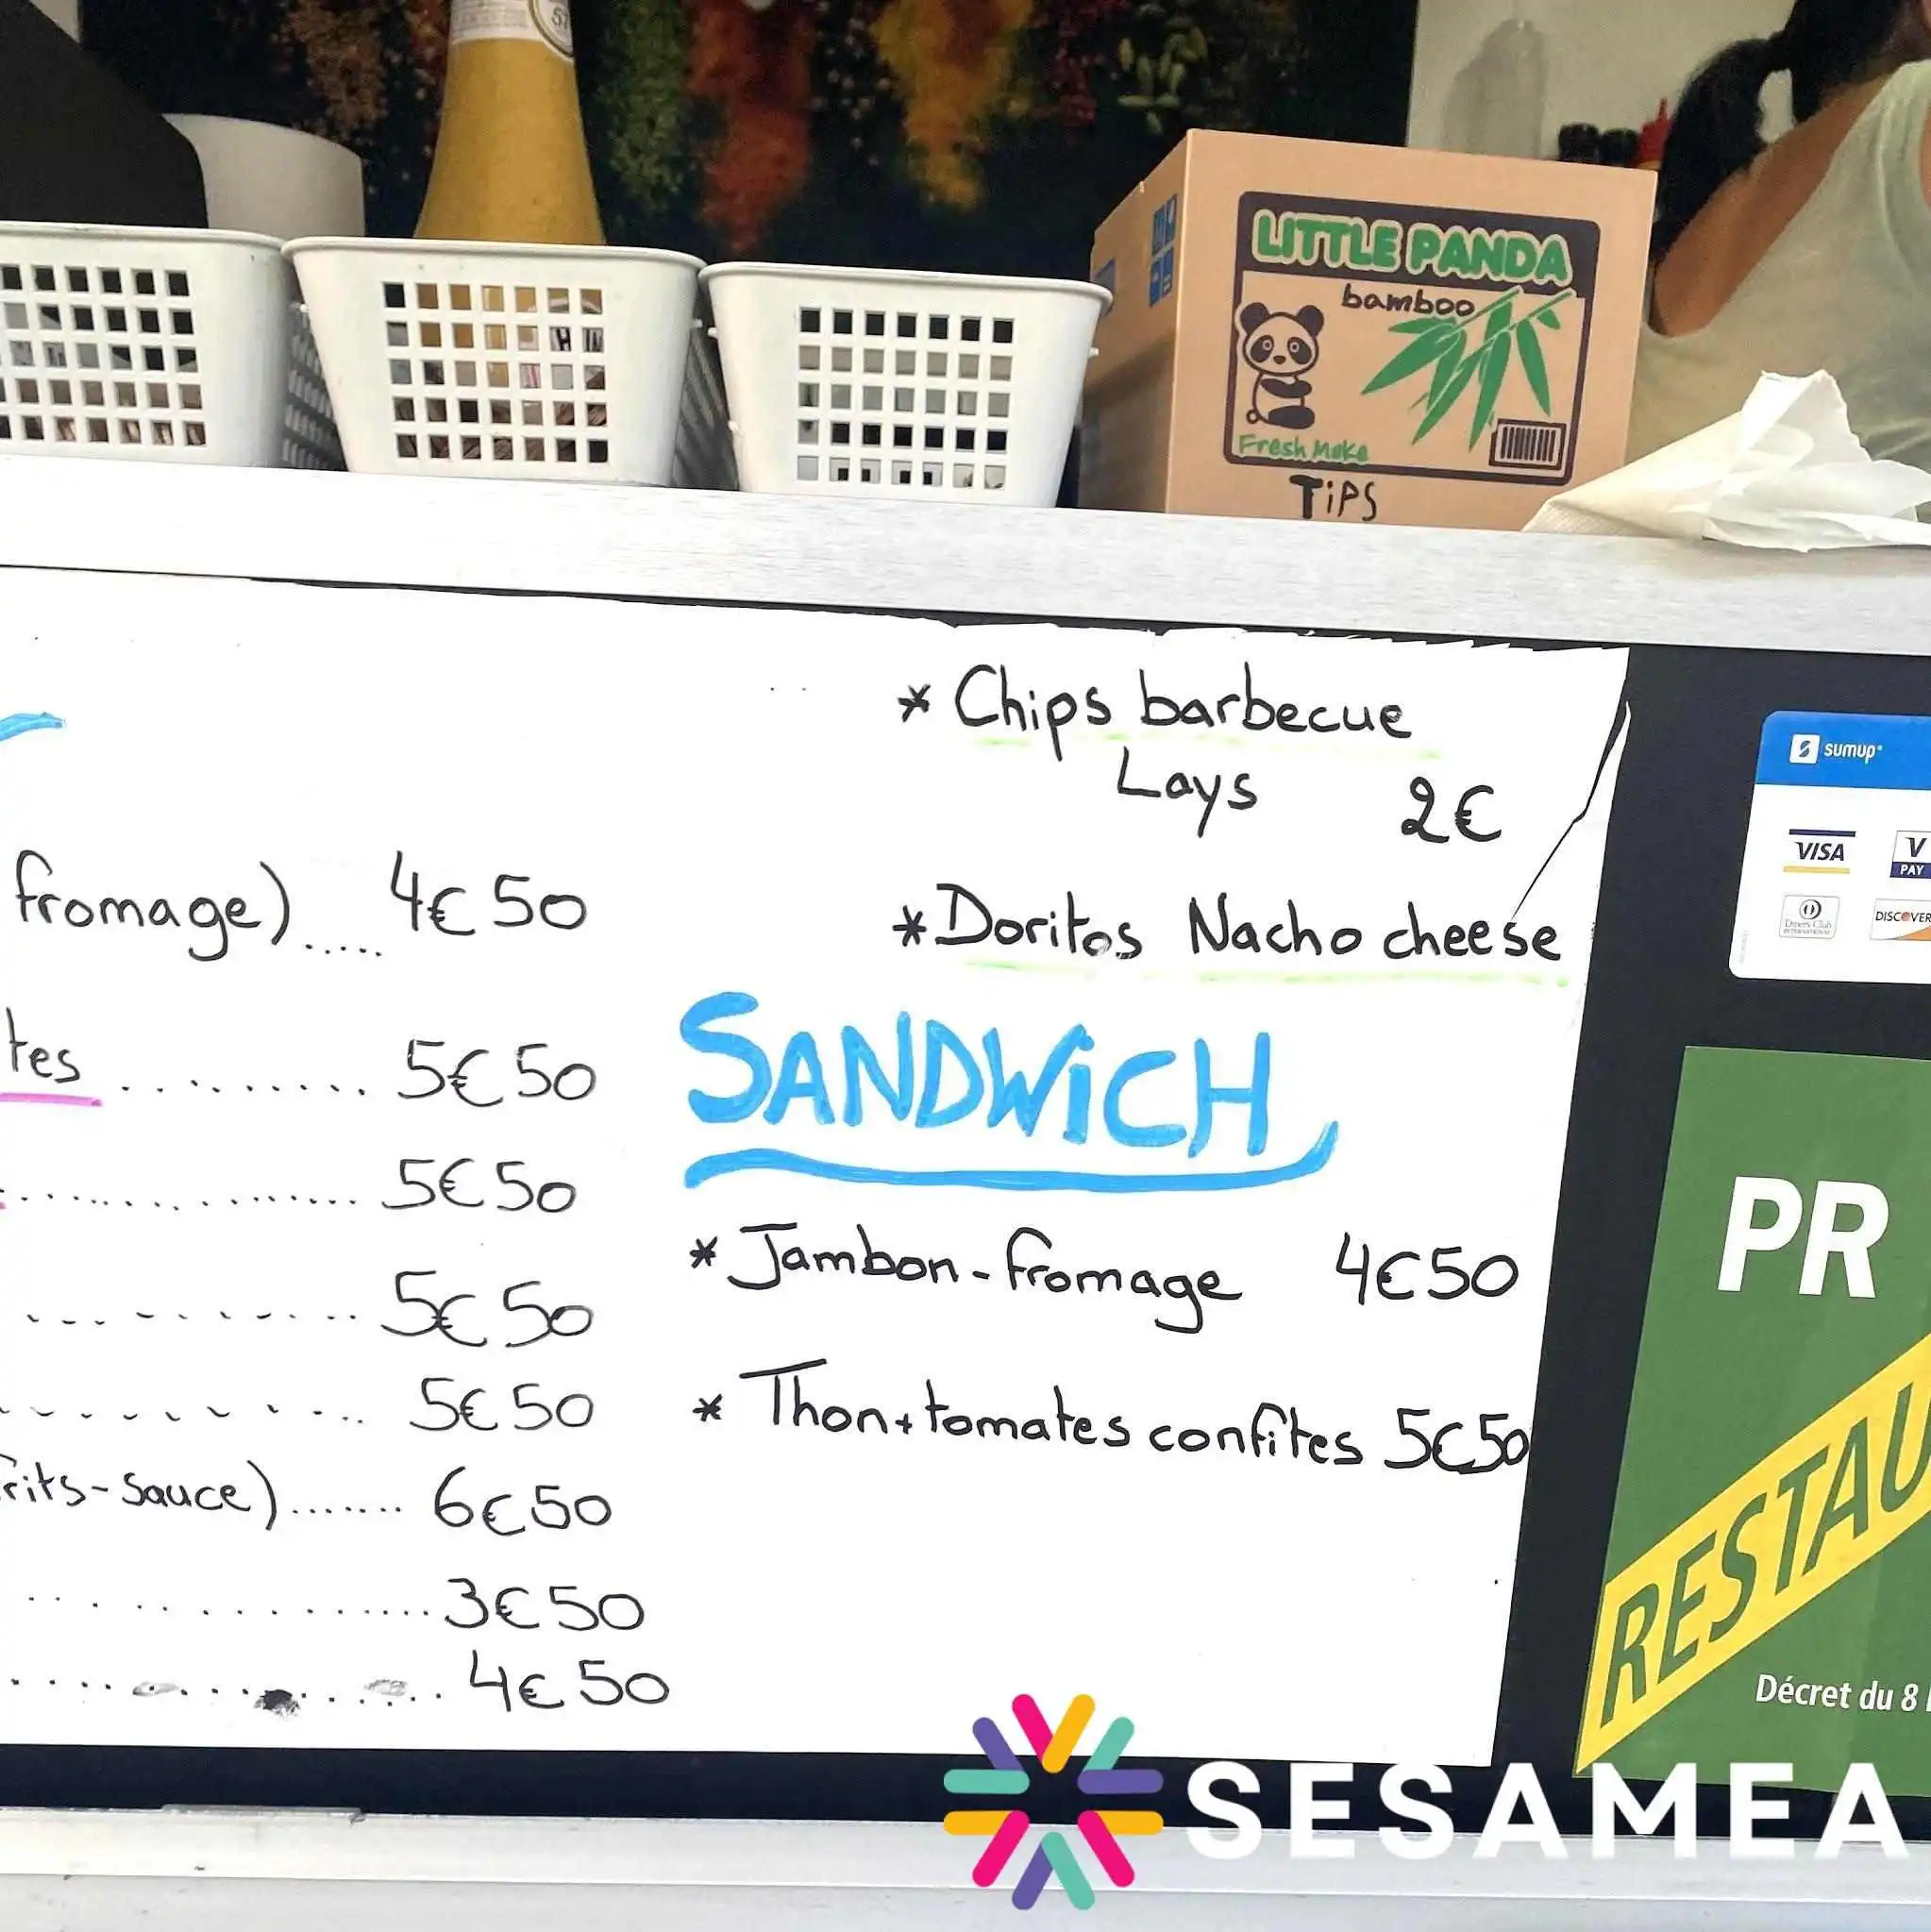 LITTLE PANDA
bamboo
Fresh Make
TiPS
fromage)..... 4€50
tes ......... 5€50
5€50
5€50
5€50
rits-Sauce)....... 6€50
3€50
4€50
* Chips barbecue
Lays 2€
* Doritos Nacho cheese
SANDWiCH
* Jambon-fromage 4€50
* Thon+tomates confites 5€50
sumup
VISA
V
PAY
Diners Club
INTERNATIONAL
DISCOVER
PR
RESTAU
Décret du 8
SESAMEA